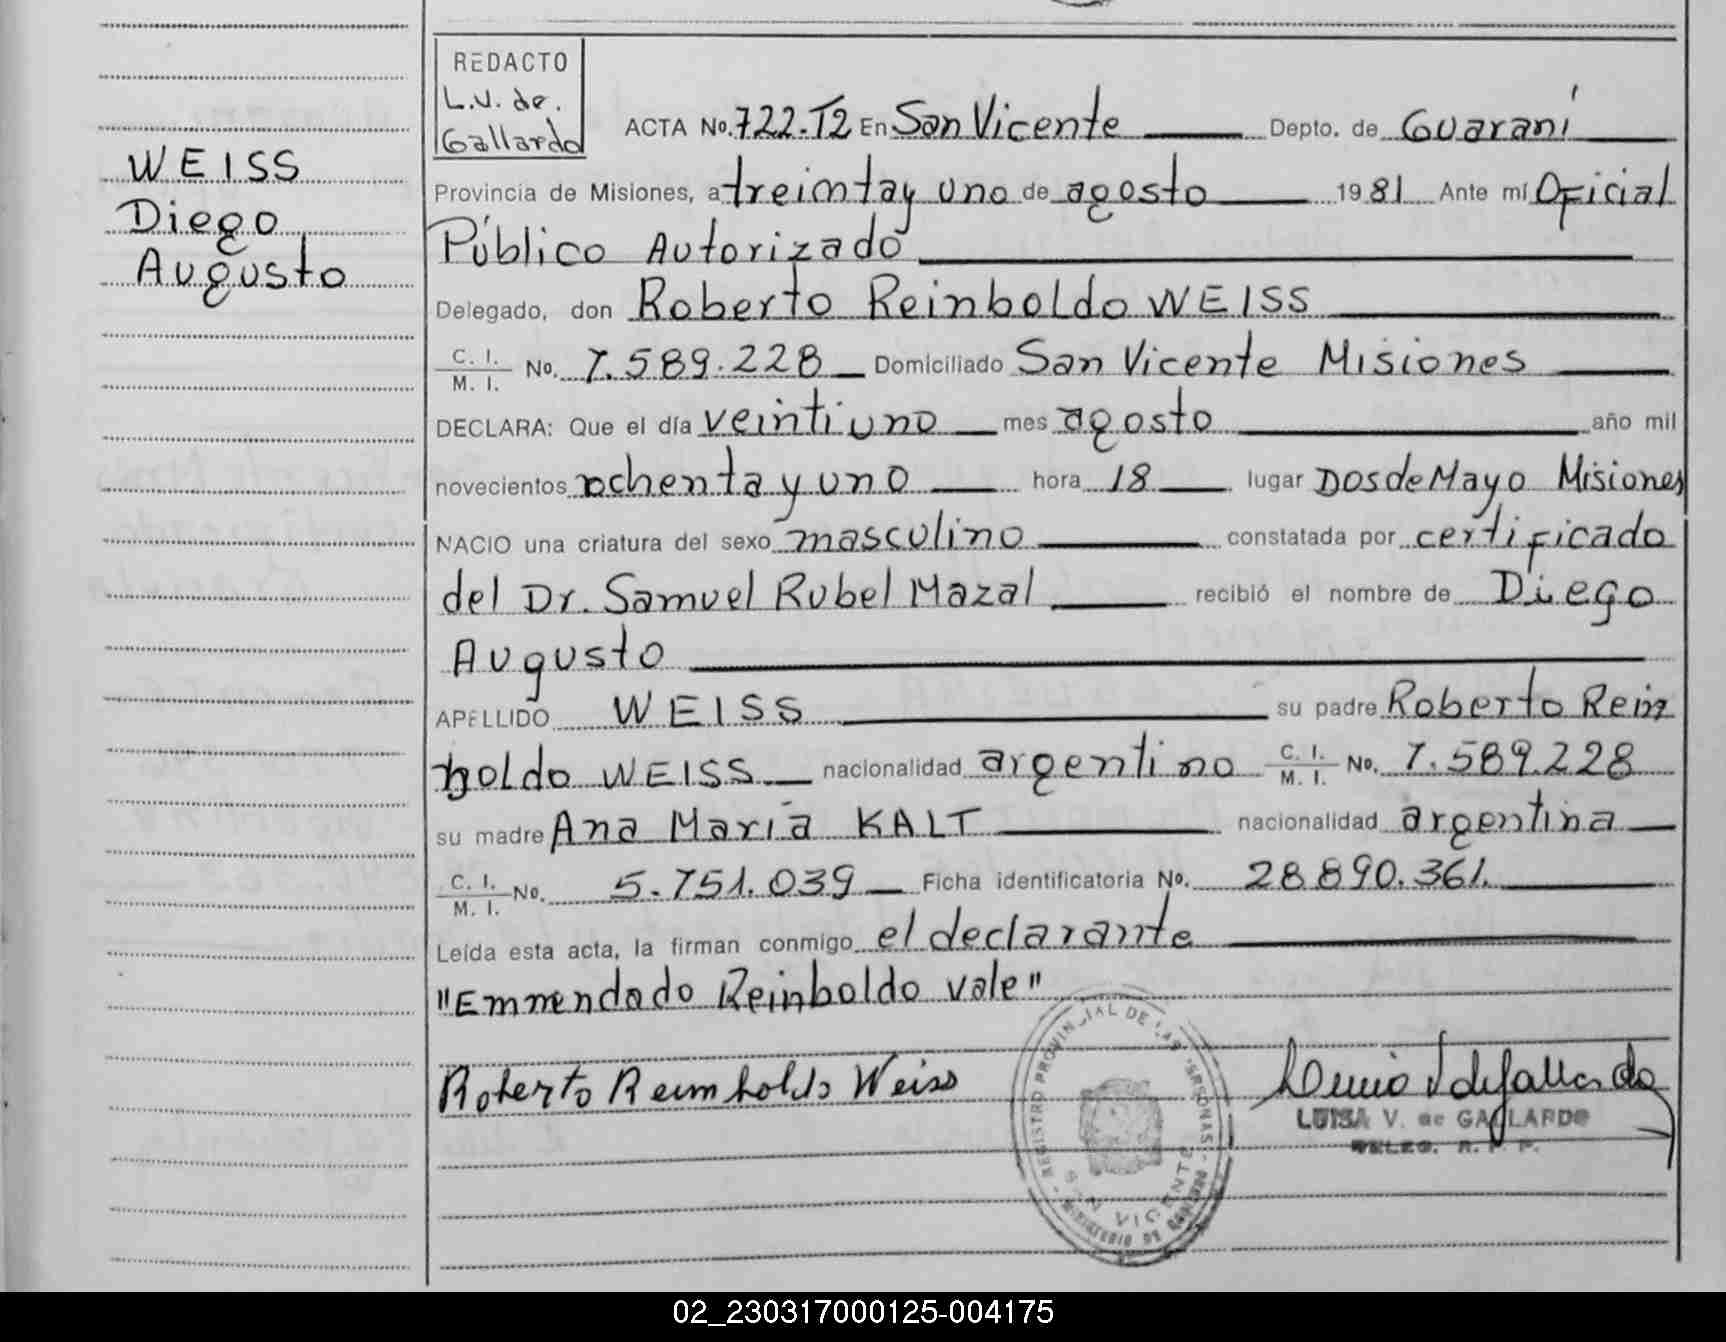 WEISS
Diego
Augusto
REDACTO
L.V. de.
Gallardo
ACTA No. 722.T2 En San Vicente Depto. de Guaraní
Provincia de Misiones, a treinta y uno de agosto 1981 Ante mí Oficial
Público Autorizado
Delegado, don Roberto Reinboldo WEISS
C. I.
M. I. No. 7.589.228 Domiciliado San Vicente Misiones
DECLARA: Que el día veintiuno mes agosto año mil
novecientos ochenta y uno hora 18 lugar Dos de Mayo Misiones
NACIO una criatura del sexo masculino constatada por certificado
del Dr. Samuel Rubel Mazal recibió el nombre de Diego
Augusto
APELLIDO WEISS su padre Roberto Rein
boldo WEISS nacionalidad argentino C. I.
M. I. No. 7.589.228
su madre Ana María KALT nacionalidad argentina
C. I.
M. I. No. 5.751.039 Ficha identificatoria No. 28890.361.
Leída esta acta, la firman conmigo el declarante
"Emmendado Reinboldo vale"
Roberto Reimholdo Weiss
REGISTRO PROVINCIAL DE LAS PERSONAS
SAN VICENTE
MINISTERIO DE GOBIERNO
LUISA V. de GALLARDO
DELEG. R. P. P.
02_230317000125-004175